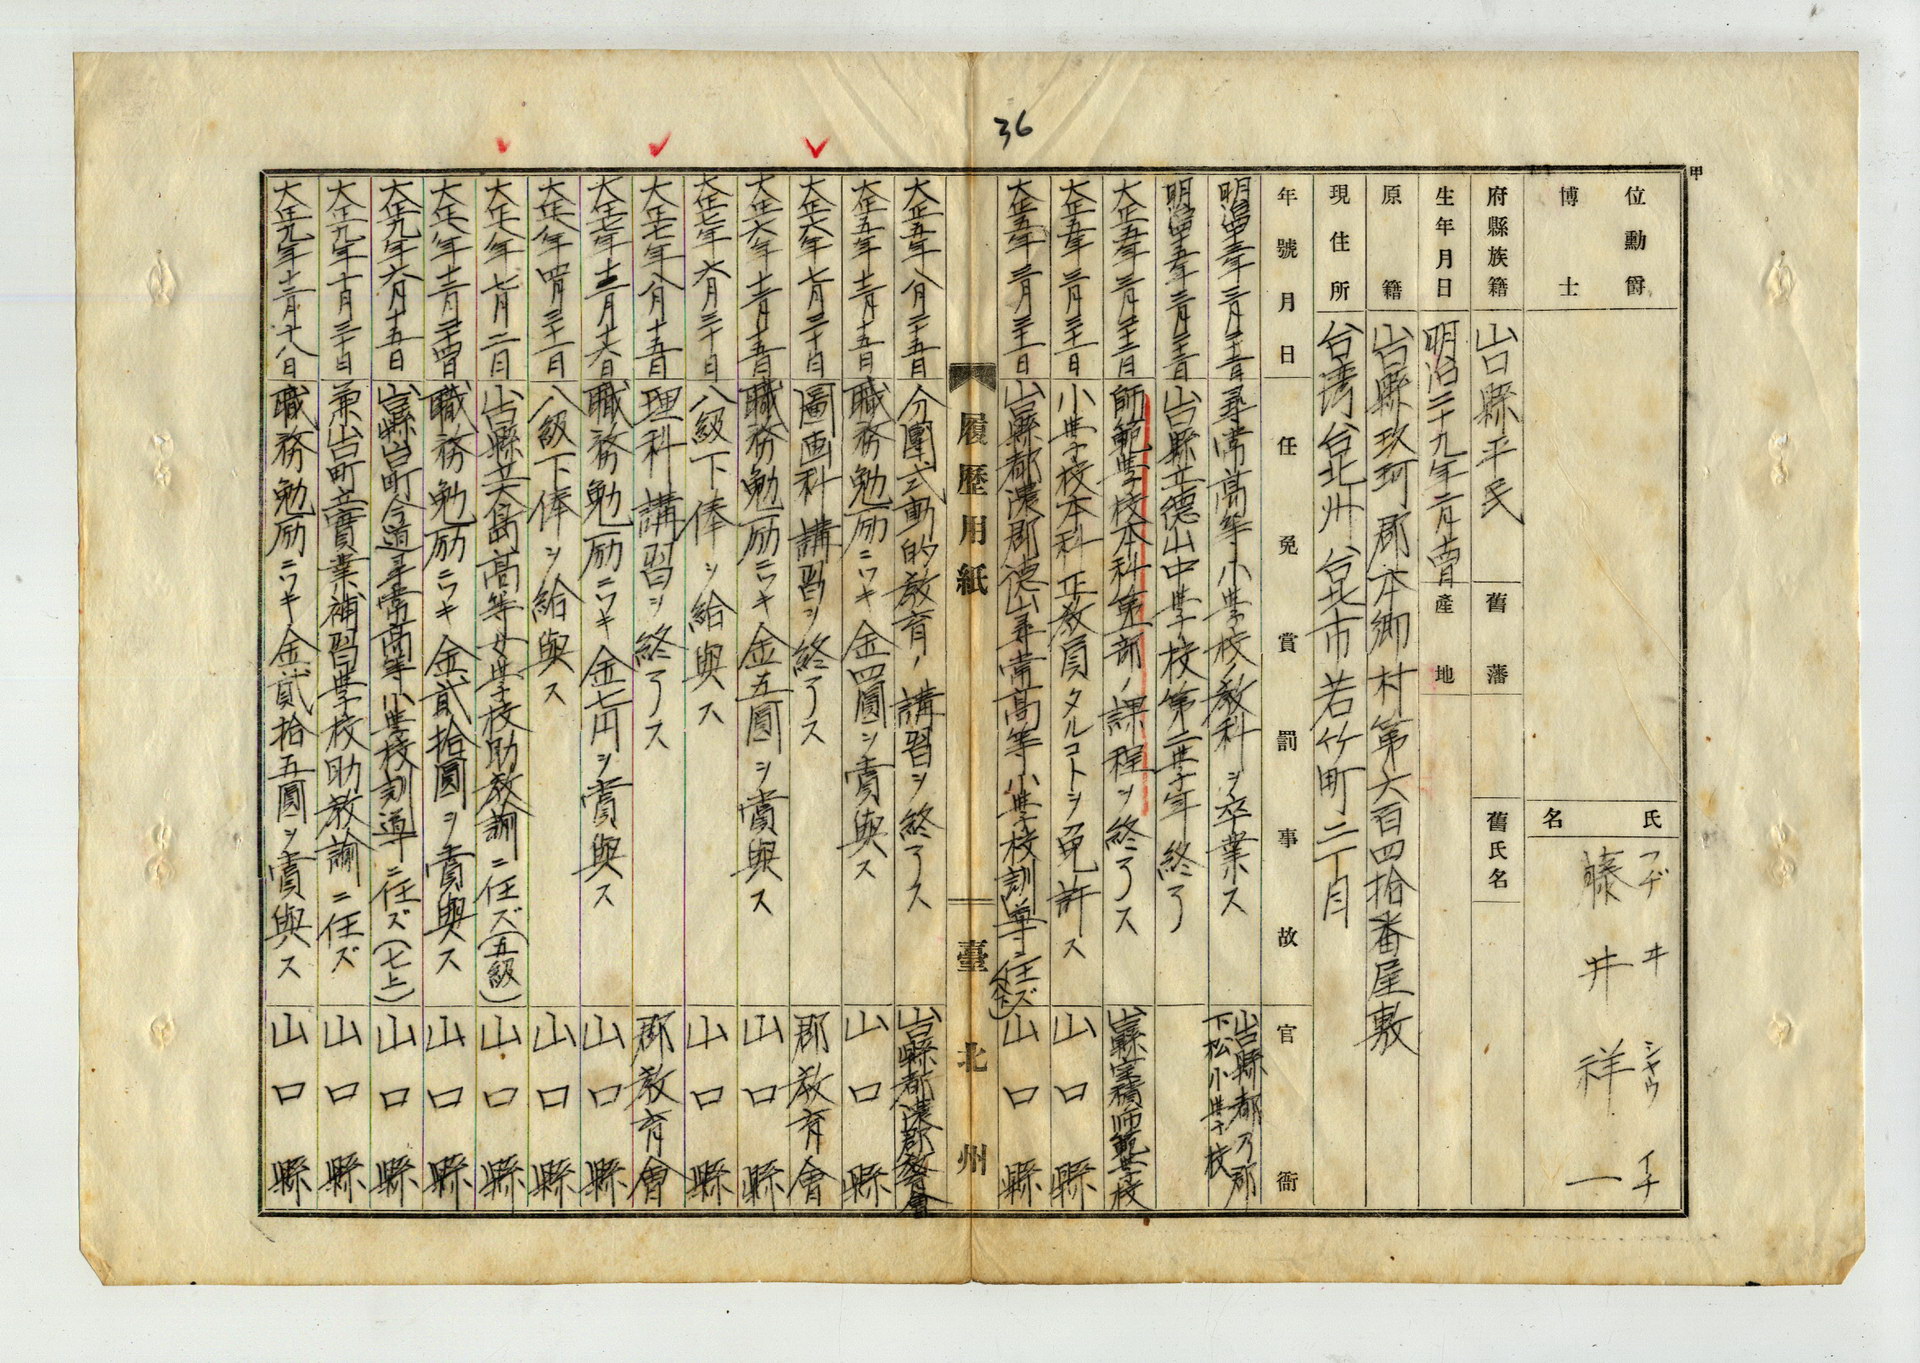 36
甲
位勳爵
博士
氏名
フヂヰ シャウイチ
藤井祥一
府縣族籍
山口縣平民
舊藩
舊氏名
生年月日
明治二十九年二月
產地
原籍
山口縣玖珂郡本鄉村第六百四拾番屋敷
現住所
台湾台北州台北市若竹町二丁目
年號月日
任免賞罰事故
官衙
尋常高等小學校ノ教科ヲ卒業ス
山口縣都乃郡
下松小學校
山口縣立德山中學校第二學年終了
師範學校本科第一部ノ課程ヲ終了ス
山口縣室積師範學校
大正五年三月三十一日
小學校本科正教員タルコトヲ免許ス
山口縣
大正五年三月三十一日
山口縣都濃郡德山尋常高等小學校訓導ニ任ズ
山口縣
履歷用紙
臺北州
大正五年八月二十五日
分團式動的教育ノ講習ヲ終了ス
山口縣都濃郡教育會
大正五年十二月十五日
職務勉励ニツキ金四圓ヲ賞與ス
山口縣
大正六年七月二十日
圖画科講習ヲ終了ス
郡教育會
大正六年十二月十五日
職務勉励ニツキ金五圓ヲ賞與ス
山口縣
大正七年六月三十日
八級下俸ヲ給與ス
山口縣
大正七年八月十五日
理科講習ヲ終了ス
郡教育會
大正七年十二月十六日
職務勉励ニツキ金七円ヲ賞與ス
山口縣
大正八年四月三十一日
八級下俸ヲ給與ス
山口縣
大正八年七月二日
山口縣立大島高等女學校助教諭ニ任ズ(五級)
山口縣
大正八年十二月二十四日
職務勉励ニツキ金貳拾圓ヲ賞與ス
山口縣
大正九年六月十五日
山口縣山口町今道尋常高等小學校訓導ニ任ズ(七上)
山口縣
大正九年十月三十日
兼山口町立實業補習學校助教諭ニ任ズ
山口縣
大正九年十二月十八日
職務勉励ニツキ金貳拾五圓ヲ賞與ス
山口縣